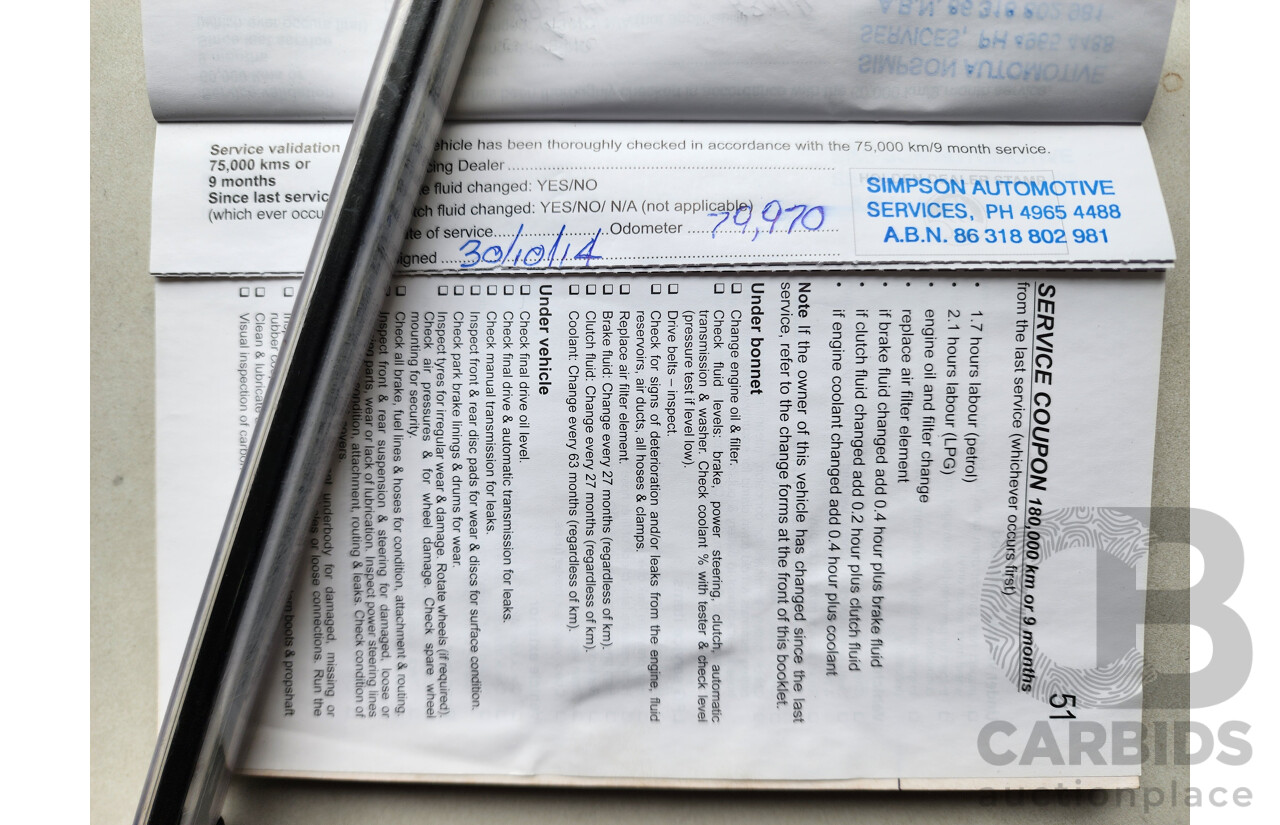 A.B.N. 86 318 802 981
SERVICES, PH 4965 4488
SIMPSON AUTOMOTIVE
Service validation
75,000 kms or
9 months
Since last servic
(which ever occu
ehicle has been thoroughly checked in accordance with the 75,000 km/9 month service.
cing Dealer
e fluid changed: YES/NO
tch fluid changed: YES/NO/ N/A (not applicable)
te of service..............................Odometer 79,970
igned 30/10/14
SIMPSON AUTOMOTIVE
SERVICES, PH 4965 4488
A.B.N. 86 318 802 981
51
SERVICE COUPON 180,000 km or 9 months
from the last service (whichever occurs first)
• 1.7 hours labour (petrol)
• 2.1 hours labour (LPG)
• engine oil and filter change
• replace air filter element
• if brake fluid changed add 0.4 hour plus brake fluid
• if clutch fluid changed add 0.2 hour plus clutch fluid
• if engine coolant changed add 0.4 hour plus coolant
Note If the owner of this vehicle has changed since the last
service, refer to the change forms at the front of this booklet.
Under bonnet
❑ Change engine oil & filter.
❑ Check fluid levels: brake, power steering, clutch, automatic
transmission & washer. Check coolant % with tester & check level
(pressure test if level low).
❑ Drive belts – inspect.
❑ Check for signs of deterioration and/or leaks from the engine, fluid
reservoirs, air ducts, all hoses & clamps.
❑ Replace air filter element.
❑ Brake fluid: Change every 27 months (regardless of km).
❑ Clutch fluid: Change every 27 months (regardless of km).
❑ Coolant: Change every 63 months (regardless of km).
Under vehicle
❑ Check final drive oil level.
❑ Check final drive & automatic transmission for leaks.
❑ Check manual transmission for leaks.
❑ Inspect front & rear disc pads for wear & discs for surface condition.
❑ Check park brake linings & drums for wear.
❑ Inspect tyres for irregular wear & damage. Rotate wheels (if required).
Check air pressures & for wheel damage. Check spare wheel
mounting for security.
❑ Check all brake, fuel lines & hoses for condition, attachment & routing.
❑ Inspect front & rear suspension & steering for damaged, loose or
parts, wear or lack of lubrication. Inspect power steering lines
condition, attachment, routing & leaks. Check condition of
covers.
underbody for damaged, missing or
or loose connections. Run the
❑ Insp
rubber boots & propshaft
❑ Clean & lubricate
❑ Visual inspection of carbon
CARBIDS
auctionplace